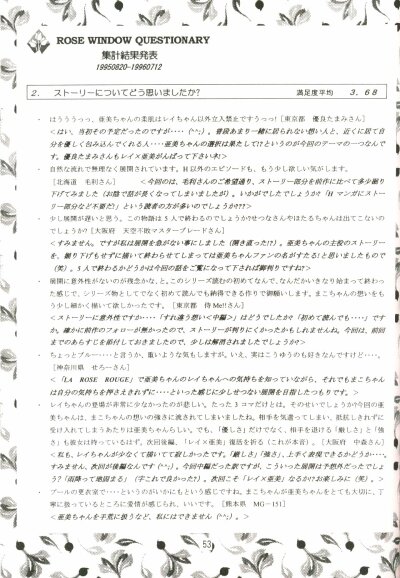 ROSE WINDOW QUESTIONARY
集計結果発表
19950820-19960712
2. ストーリーについてどう思いましたか? 満足度平均 3.68
・ はうううっっ、亜美ちゃんの柔肌はレイちゃん以外立入禁止ですうっっ! [東京都 優良たまみさん]
<はい、当初その予定だったのですが・・・・(^^;)。普段あまり一緒に居られない想い人と、近くに居て自
分を優しく包み込んでくれる人・・・・亜美ちゃんの選択は果たして!?というのが今回のテーマの一つなんで
す。優良たまみさんもレイ×亜美がんばって下さい※!>
・ 自然な流れで無理なく展開されています。H以外のエピソードも、もう少し欲しい気がします。
[北海道 毛利さん] <今回のは、毛利さんのご希望通り、ストーリー部分を前作に比べて多少掘り
下げてみました(お話で話が長くなってしまいましたが)。いかがでしたでしょうか?「Hマンガにストー
リー部分など不要だ」という読者の方が多いのでしょうか???>
・ 少し展開が遅いと思う。この物語は5人で終わるのでしょうか?せつなさんやほたるちゃんは出てこないの
でしょうか? [大阪府 天空不敗マスターブレードさん]
<すみません。ですが私は展開を急がない事にしました(開き直った!?)。亜美ちゃんの主役のストーリー
を、掘り下げもせずに描いて終わらせてしまっては亜美ちゃんファンの名がすたる!と思いましたもので
(笑)。5人で終わるかどうかは今回の話をご覧になって下されば御判りですね?>
・ 展開に意外性がないのが残念かな、と。このシリーズ読むの初めてなんで、なんだかいきなり始まって終わっ
た感じで、シリーズ物としてでなく初めて読んでも納得できる作りで御願いします。まこちゃんの想いをも
う少し細かく描いて欲しかったです。 [東京都 侍Me!!さん]
<ストーリーに意外性ですか・・・・「すれ違う想い<中編>」はどうでしたか?「初めて読んでも・・・・」です
か。確かに前作のフォローが無かったので、ストーリーが判りにくかったかもしれませんね。今回は、前回
までのあらすじを添付しておきましたので、少しは解消されましたでしょうか?>
・ ちょっとブルー・・・・と言うか、重いような気もしますが。いえ、実はこうゆうのも好きなんですけど・・・・。
[神奈川県 せろーさん]
<「LA ROSE ROUGE」で亜美ちゃんのレイちゃんへの気持ちを知っていながら、それでもまこちゃん
は自分の気持ちを押さえきれずに・・・・といった感じに少しせつない展開を目指したつもりです。>
・ レイちゃんの登場が非常に少なかったのが悲しい。たった3コマだけとは。そのせいでしょうか?今回の亜
美ちゃんは、まこちゃんの想いの強さに流されてしまいましたね。相手を気遣ってしまい、抵抗しきれずに
受け入れてしまうあたりは亜美ちゃんらしい。でも、「優しさ」だけでなく、相手を退ける「厳しさ」と「強
さ」も彼女は持っているはず。次回後編、「レイ×亜美」復活を祈る(これが本音)。 [大阪府 中森さん]
<私も、レイちゃんが少なくて描いてて寂しかったです。「厳しさ」「強さ」、上手く表現できるかどうか・・・・。
すみません、次回が後編なんです(^^;)。今回中編だった訳ですが、こういった展開は予想外だったでしょ
う?「雨降って地固まる」(ずこれで良かった?)。次回こそ「レイ×亜美」なるか!?お楽しみに(笑)。>
・ プールの更衣室で・・・・というのがいかにもという感じですね。まこちゃんが亜美ちゃんをとても大切に、丁
寧に扱っているところに愛情が感じられ、いいです。 [熊本県 MG-151]
<亜美ちゃんを手荒に扱うなど、私にはできません(^^;)。>
53